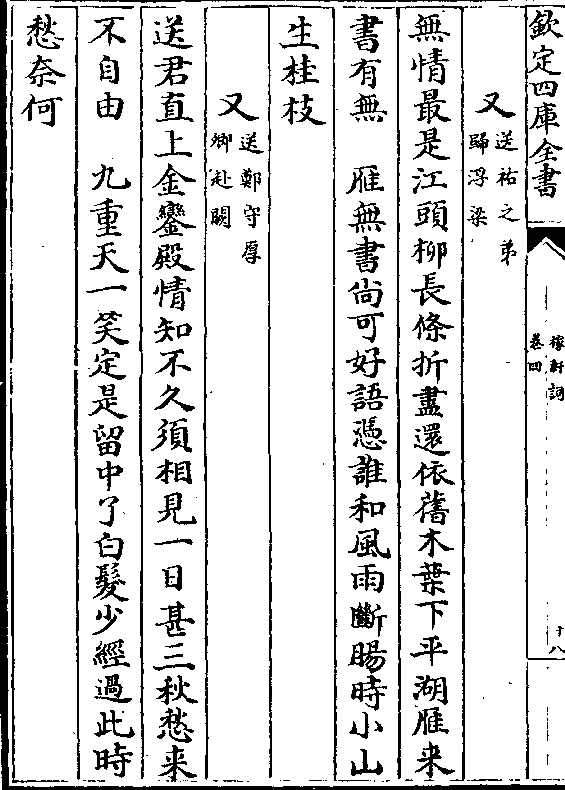 欽定四庫全書
稼軒詞
卷四
十八
又送祐之弟
歸浮梁
無情最是江頭柳長條折盡還依舊木葉下平湖雁來
書有無　雁無書尚可好語憑誰和風雨斷腸時小山
生桂枝
又送鄭守厚
卿赴闕
送君直上金鑾殿情知不久須相見一日甚三秋愁来
不自由　九重天一笑定是留中了白髮少經過此時
愁奈何